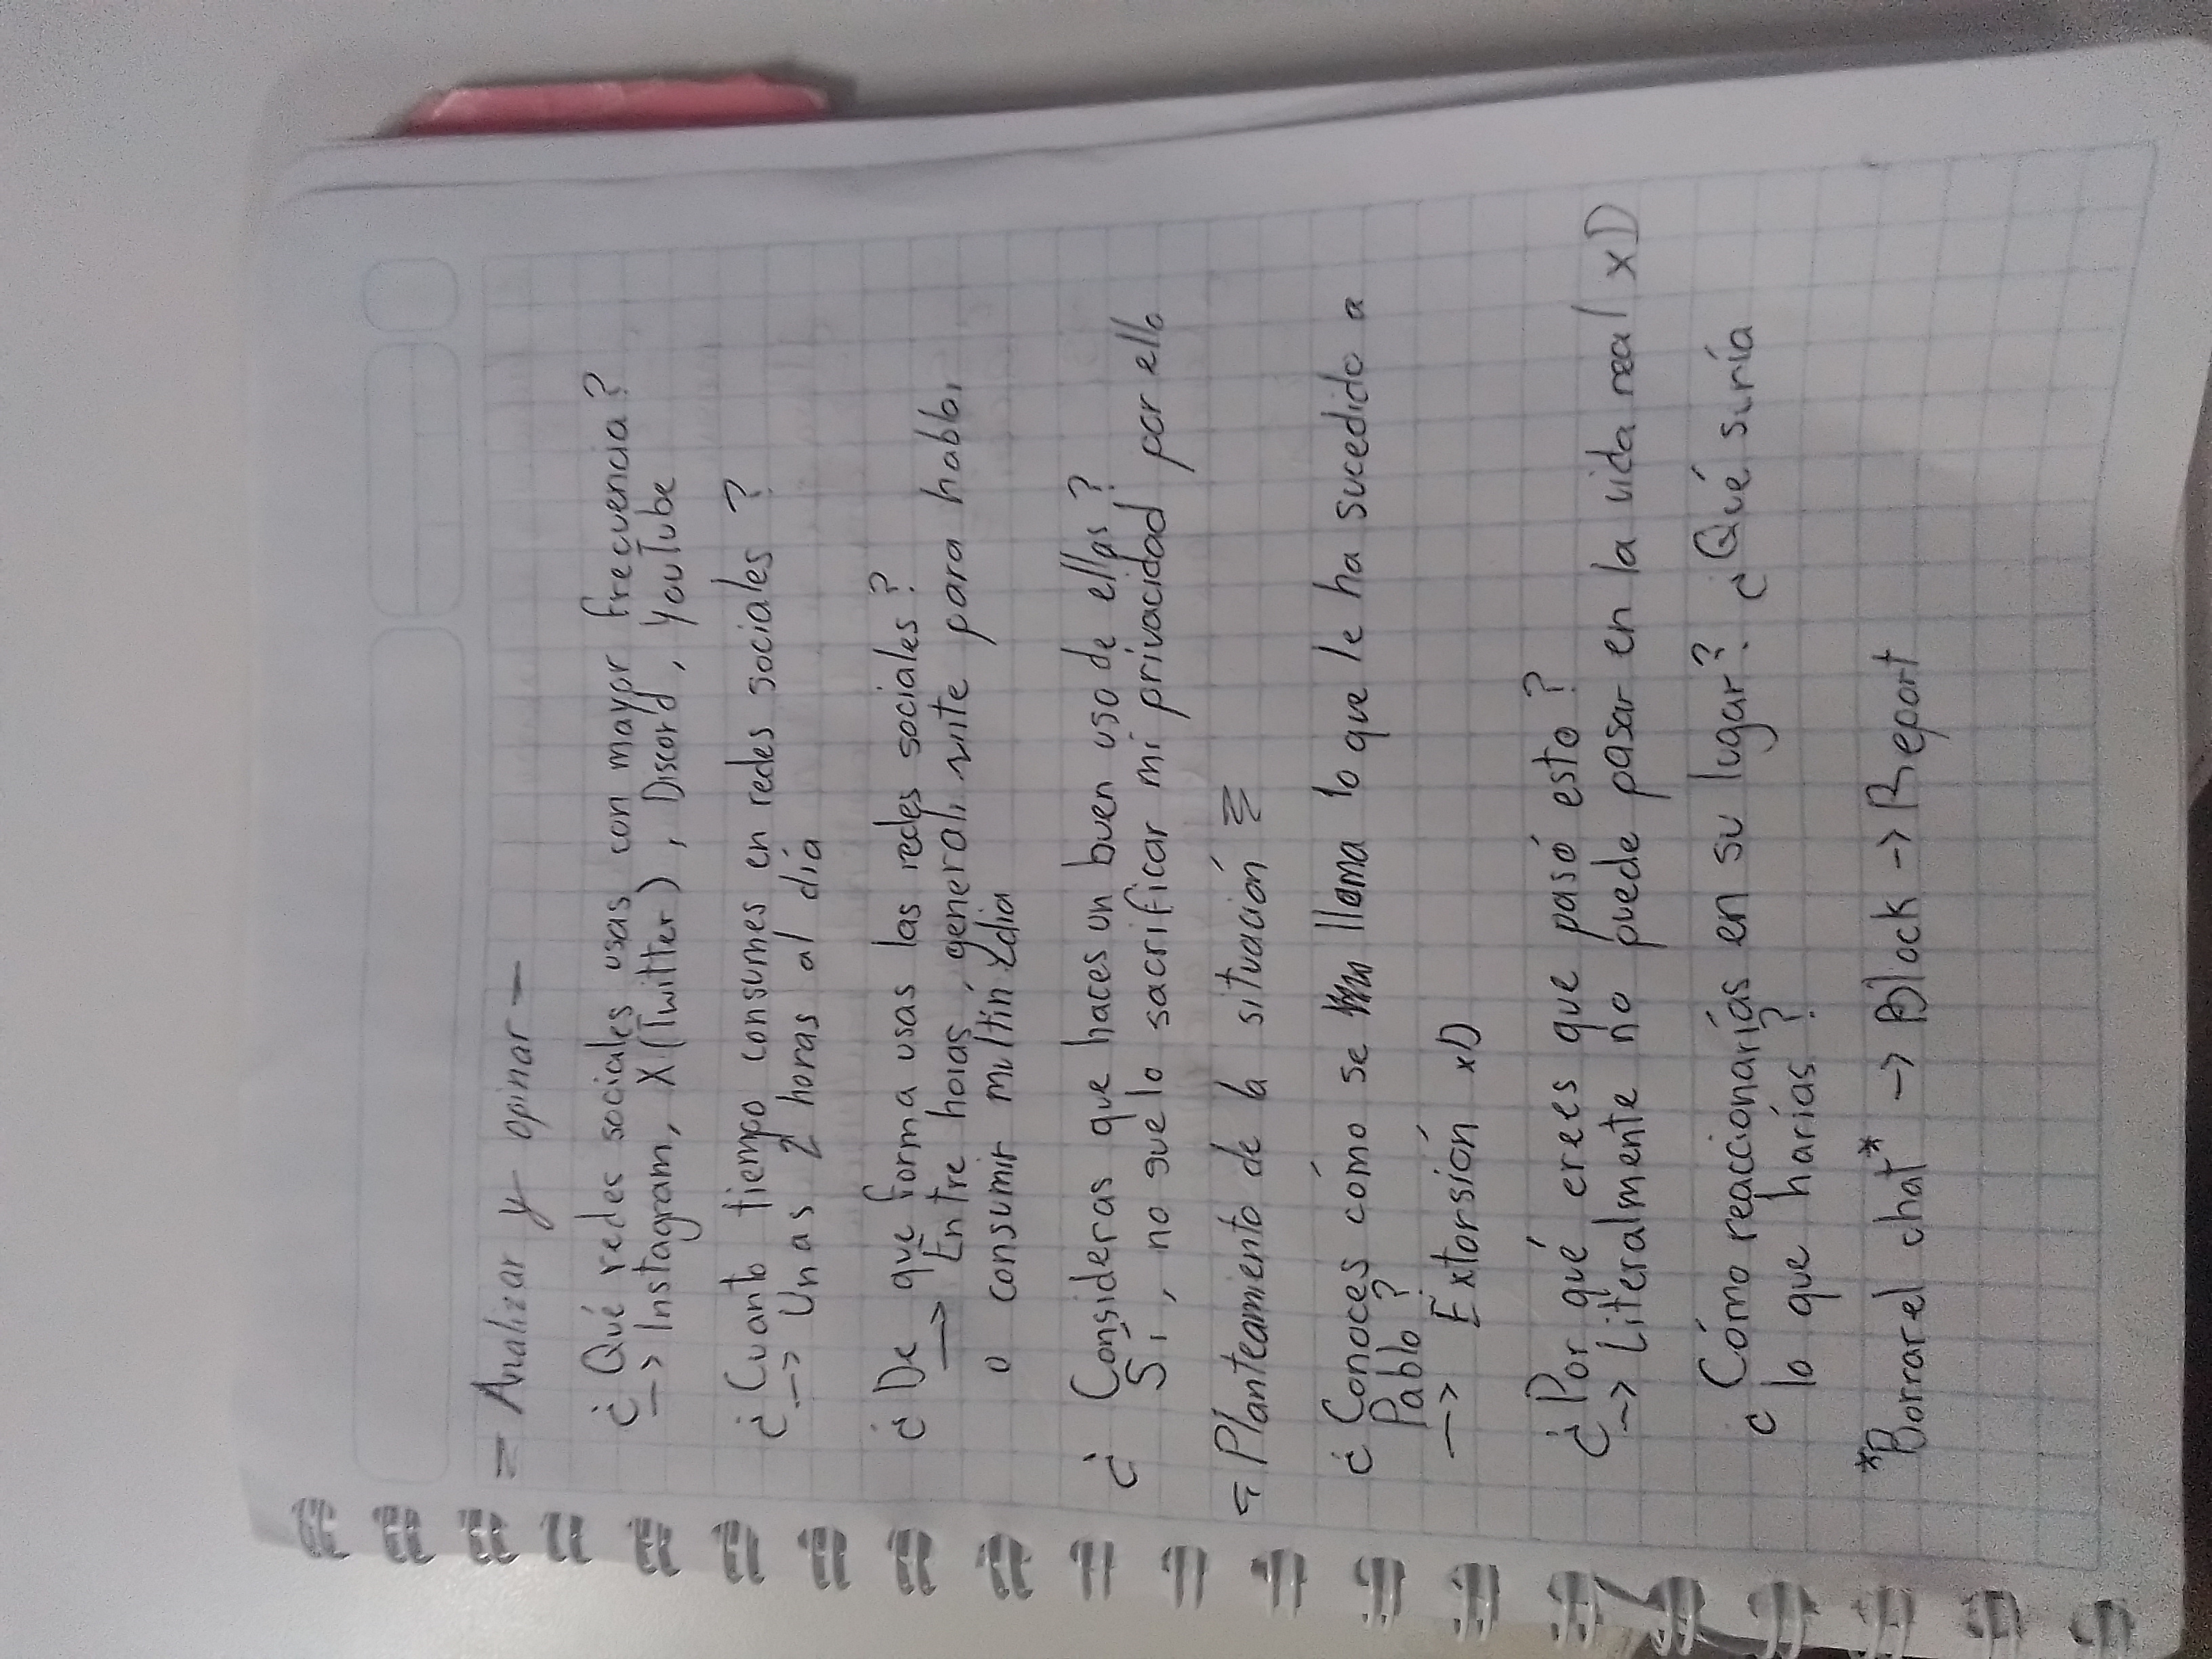 = Analizar y opinar -
¿Qué redes sociales usas con mayor frecuencia?
-> Instagram, X (Twitter), Discord, YouTube
¿Cuanto tiempo consumes en redes sociales ?
-> Unas 2 horas al día
¿De que forma usas las redes sociales?
-> Entre hojas, para hablar
o consumir
¿ Consideras que haces un buen uso de ellas ?
Si, no suelo sacrificar mi privacidad por ello
= Planteamiento de la situación =
¿ Conoces cómo se llama lo que le ha sucedido a
Pablo ?
-> Extorsión xD
¿Por qué eres que pasó esto ?
-> Literalmente no puede pasar en la vida real xD
¿ Cómo reaccionarías en su lugar? ¿Qué suría
lo que harías?
*Borrar el chat* -> Block -> Report